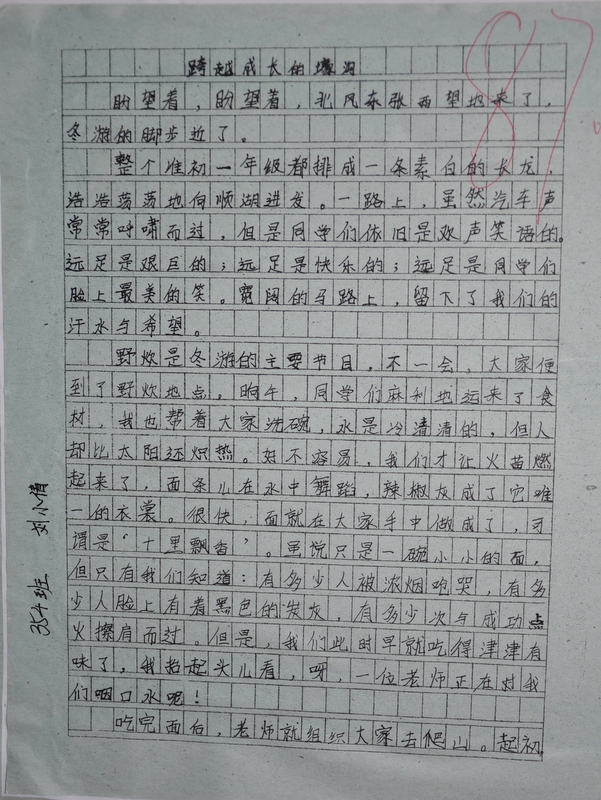 跨越成长的壕沟
盼望着，盼望着，北风东张西望地来了，
冬游的脚步近了。
整个准初一年级都排成一条素白的长龙，
浩浩荡荡地向顺湖进发。一路上，虽然汽车声
常常呼啸而过，但是同学们依旧是欢声笑语的。
远足是艰巨的；远足是快乐的；远足是同学们
脸上最美的笑。宽阔的马路上，留下了我们的
汗水与希望。
野炊是冬游的主要节目，不一会，大家便
到了野炊地点。晌午，同学们麻利地运来了食
材，我也帮着大家洗碗，水是冷清清的，但人
却比太阳还炽热。好不容易，我们才让火苗燃
起来了，面条儿在水中舞蹈，辣椒灰成了它唯
一的衣裳。很快，面就在大家手中做成了，可
谓是‘十里飘香’。虽说只是一碗小小的面，
但只有我们知道：有多少人被浓烟呛哭，有多
少人脸上有着黑色的炭灰，有多少次与成功点
火擦肩而过。但是，我们此时早就吃得津津有
味了，我抬起头儿看，呀，一位老师正在对我
们咽口水呢！
吃完面后，老师就组织大家去爬山。起初，
354班 刘小倩
87